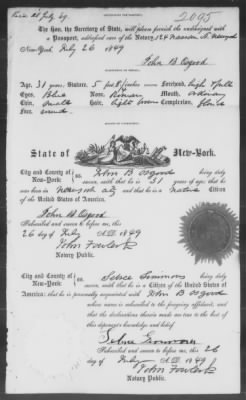 2095
Hon. the Secretary of State, will please furnish the undersigned with
a Passport, addressed care of the Notary, 124 Nassau St. New York
New-York, July 26 1849
John B. Osgood
Age, 31 years, Stature, 5 feet 8 inches Forehead, high & full
Eyes, Blue Nose, Roman Mouth, ordinary
Chin, small Hair, light brown Complexion, florid
Face
State of New-York.
City and County of New-York: John B Osgood being duly
sworn, saith that he is 31 years of age; that he
was born in and that he is a native Citizen
of the United States of America.
John B. Osgood
Subscribed and sworn to before me, this
26 day of July A.D. 1849
John Fowler Jr
Notary Public.
City and County of New-York: Simmons being duly
sworn, saith that he is a Citizen of the United States of
America; that he is personally acquainted with John B Osgood
whose name is subscribed to the foregoing affidavit, and
that the declarations therein made are true to the best of
this deponent's knowledge and belief.
Subscribed and sworn to before me, this 26
day of July A.D. 1849
John Fowler Jr
Notary Public.